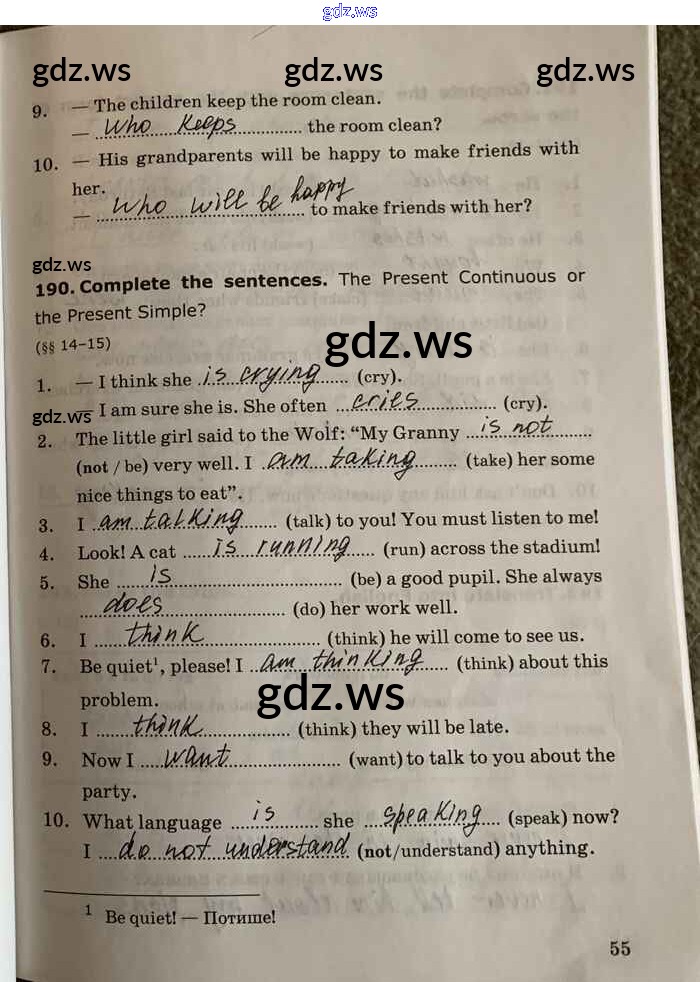 gdz.ws
gdz.ws gdz.ws gdz.ws
9. — The children keep the room clean.
— Who keeps the room clean?
10. — His grandparents will be happy to make friends with
her.
— Who will be happy to make friends with her?
gdz.ws
190. Complete the sentences. The Present Continuous or
the Present Simple?
(§§ 14–15)
gdz.ws
1. — I think she is crying (cry).
gdz.ws
— I am sure she is. She often cries (cry).
2. The little girl said to the Wolf: “My Granny is not
(not / be) very well. I am taking (take) her some
nice things to eat”.
3. I am talking (talk) to you! You must listen to me!
4. Look! A cat is running (run) across the stadium!
5. She is (be) a good pupil. She always
does (do) her work well.
6. I think (think) he will come to see us.
7. Be quiet¹, please! I am thinking (think) about this
problem.
gdz.ws
8. I think (think) they will be late.
9. Now I want (want) to talk to you about the
party.
10. What language is she speaking (speak) now?
I do not understand (not/understand) anything.
¹ Be quiet! — Потише!
55